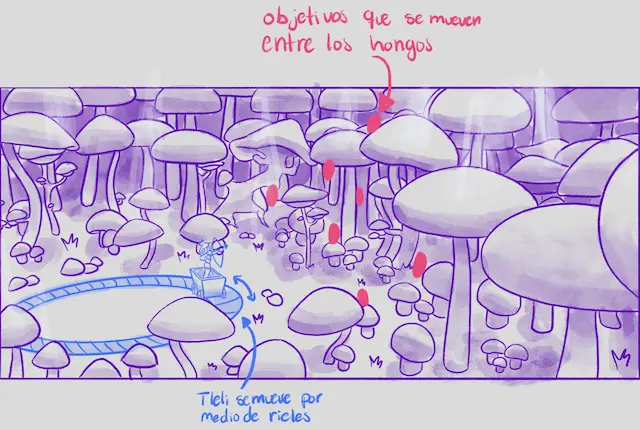 objetivos que se mueven
entre los hongos
Tleli se mueve por
medio de rieles